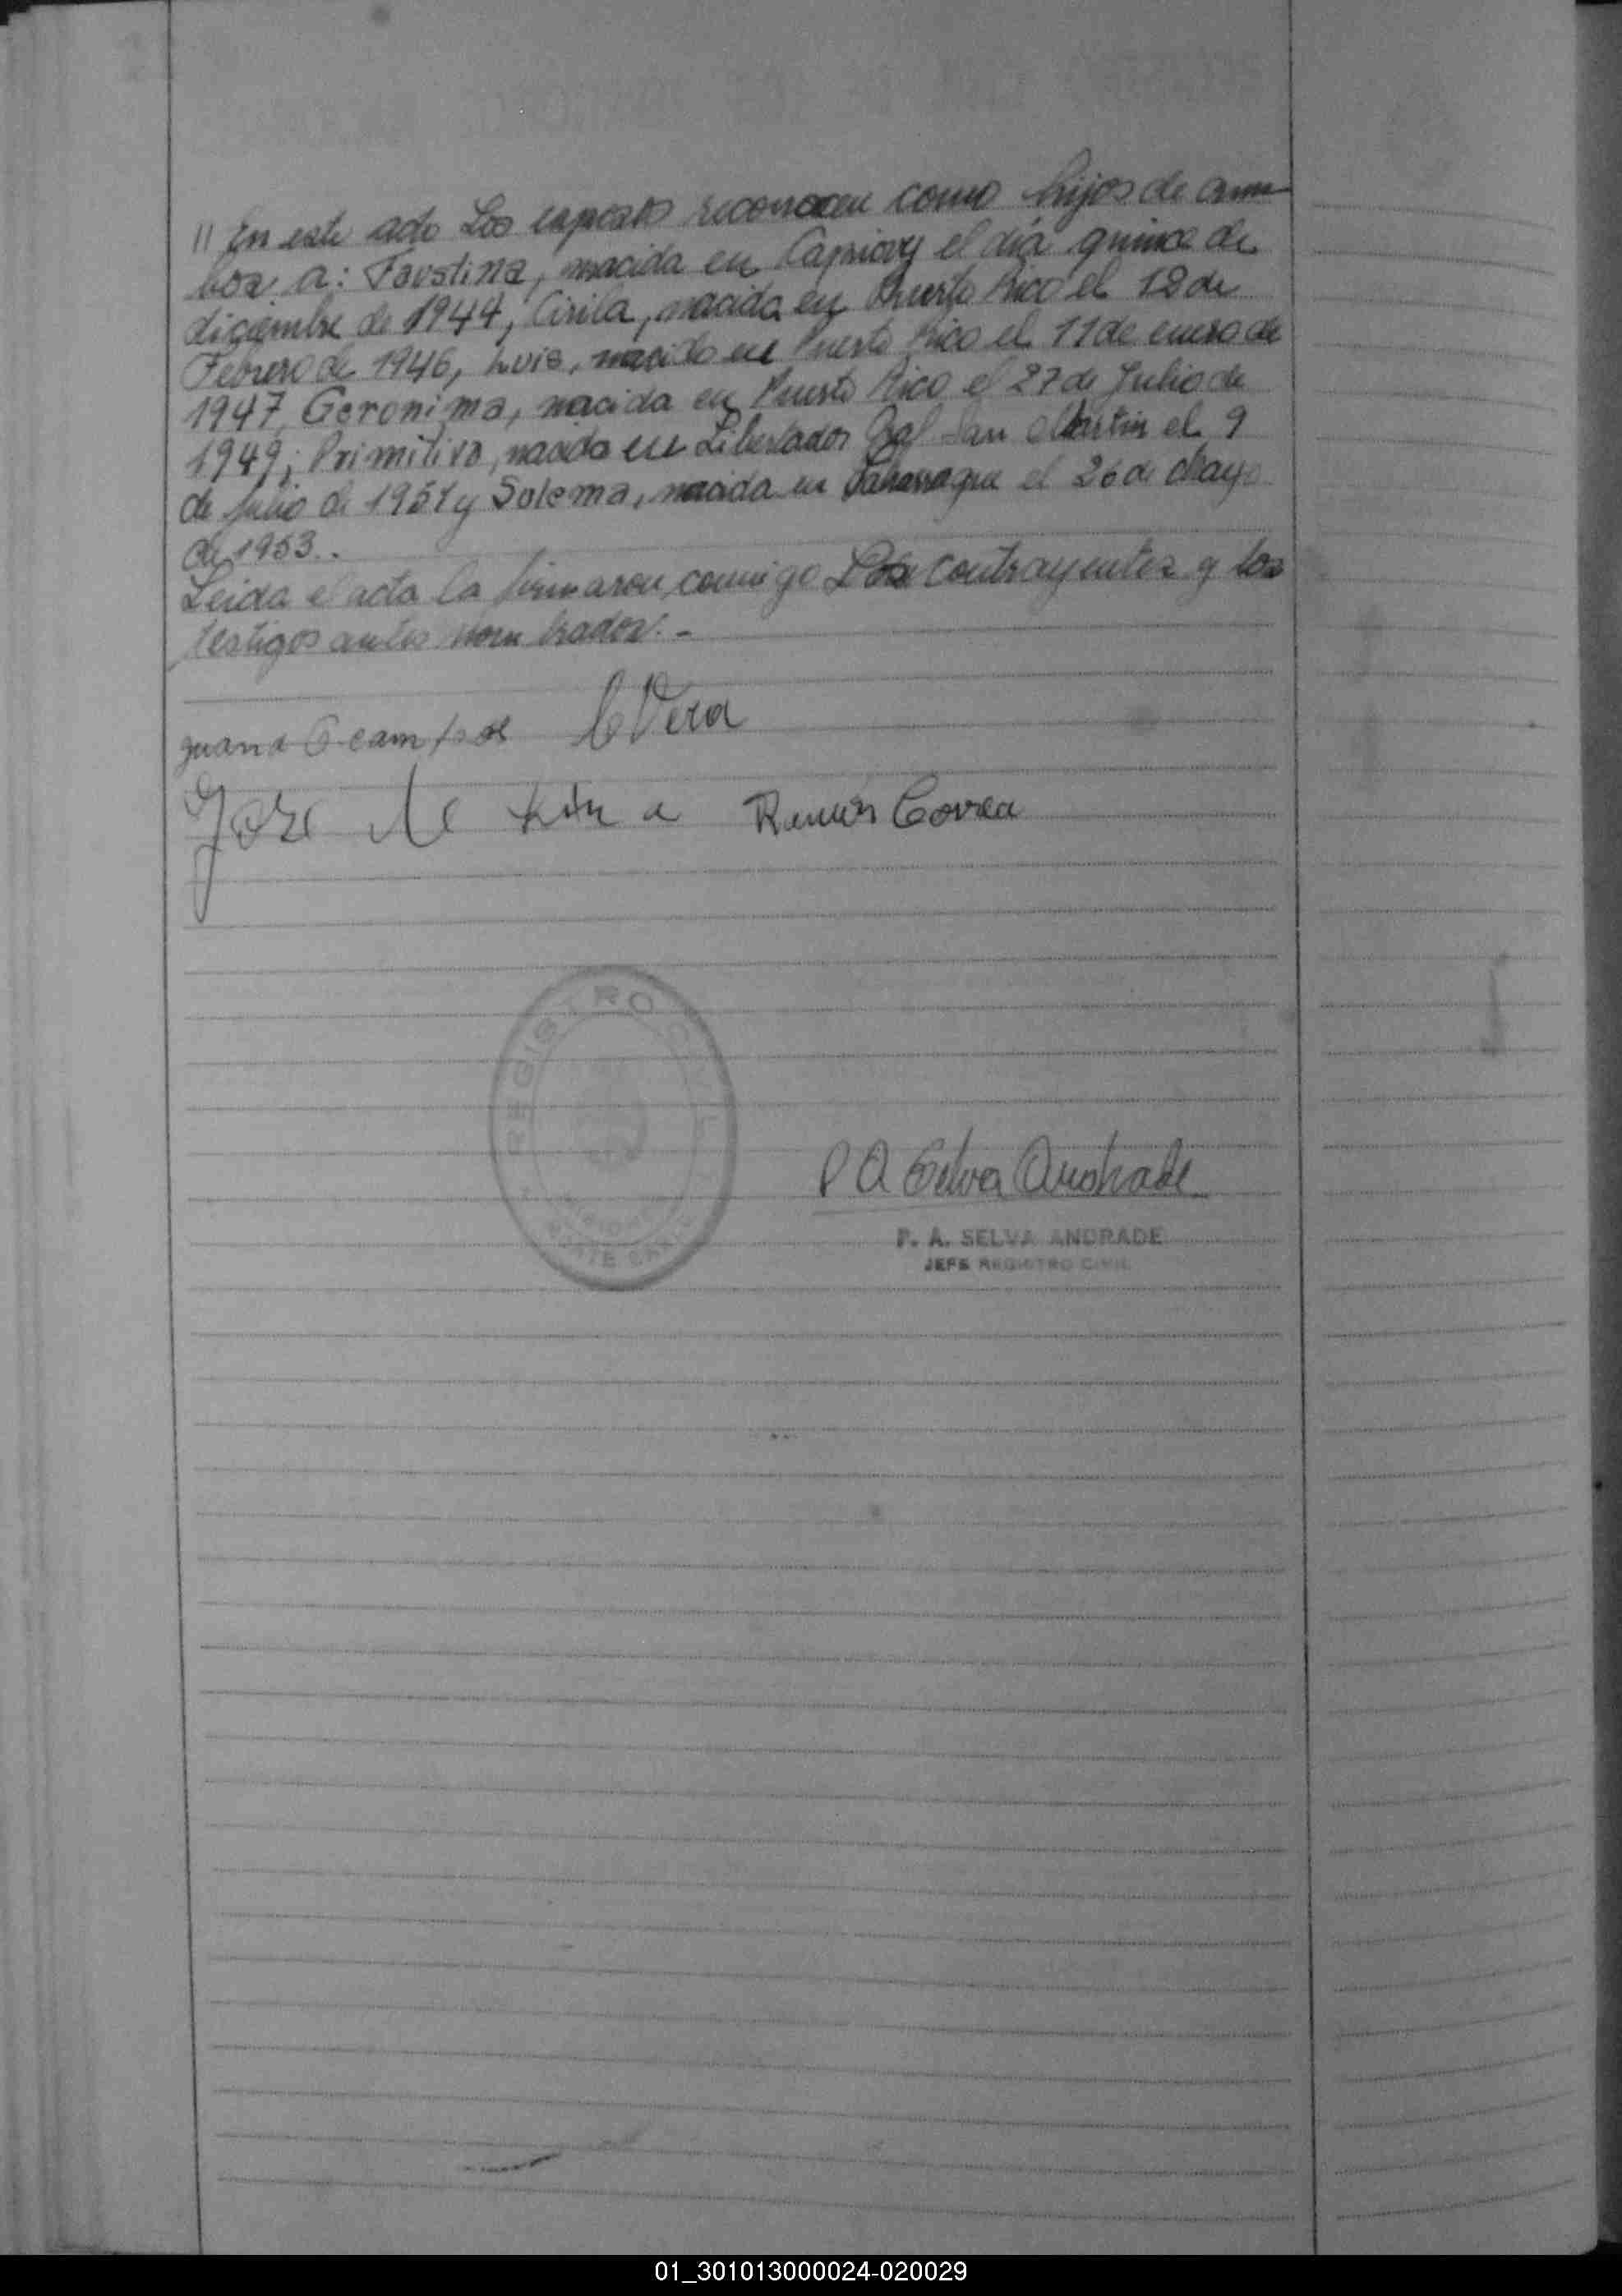 // En este acto Los esposos reconocen como hijos de am-
bos a: Faustina, nacida en Capiovy el día quince de
diciembre de 1944, Cirila, nacida en Puerto Rico el 12 de
Febrero de 1946, Luis, nacido en Puerto Rico el 11 de enero de
1947, Geronima, nacida en Puerto Rico el 27 de Julio de
1949; Primitivo, nacido en Libertador Gral San Martin el 9
de julio de 1951 y Sulema, nacida en el 26 de Mayo
de 1953..
Leida el acta la firmaron conmigo Los contrayentes y los
testigos antes nombrados.-
Juana Ocampos Vera
Jose Ramón Correa
REGISTRO CIVIL
MISIONES
P A Selva Andrade
P. A. SELVA ANDRADE
JEFE REGISTRO CIVIL
01_301013000024-020029